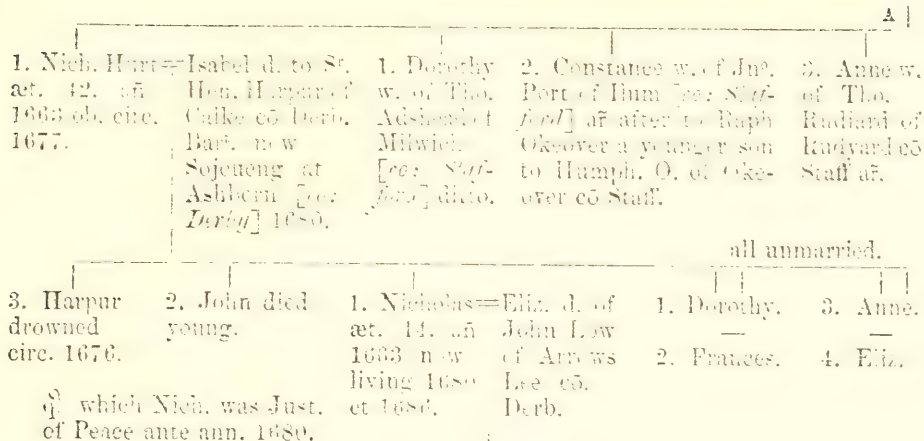 A
1. Nich. Hurt=Isabel d. to Sr.
æt. 42. añ
1663 ob. circ.
1677.
Hen. Harpur of
Calke cō Derb.
Bart. now
Sojoueng at
Ashborn [co:
Derby] 1680.
1. Dorothy
w. of Tho.
of
Milwich.
[co: Staf-
ford] ditto.
2. Constance w. of Jno.
Port of Ilum [co: Staf-
ford] ar̃ after to Raph
Okeover a younger son
to Humph. O. of Oke-
over cō Staff.
3. Anne w.
of Tho.
Rudiard of
Rudyard cō
Staff ar̃.
all unmarried.
3. Harpur
drowned
circ. 1676.
2. John died
young.
1. Nicholas=Eliz. d. of
æt. 14. añ
1663 now
living 1680
et 1686.
John Low
of
Lee cō.
Derb.
1. Dorothy.
—
2. Frances.
3. Anne.
—
4. Eliz.
which Nich. was Just.
of Peace ante ann. 1680.